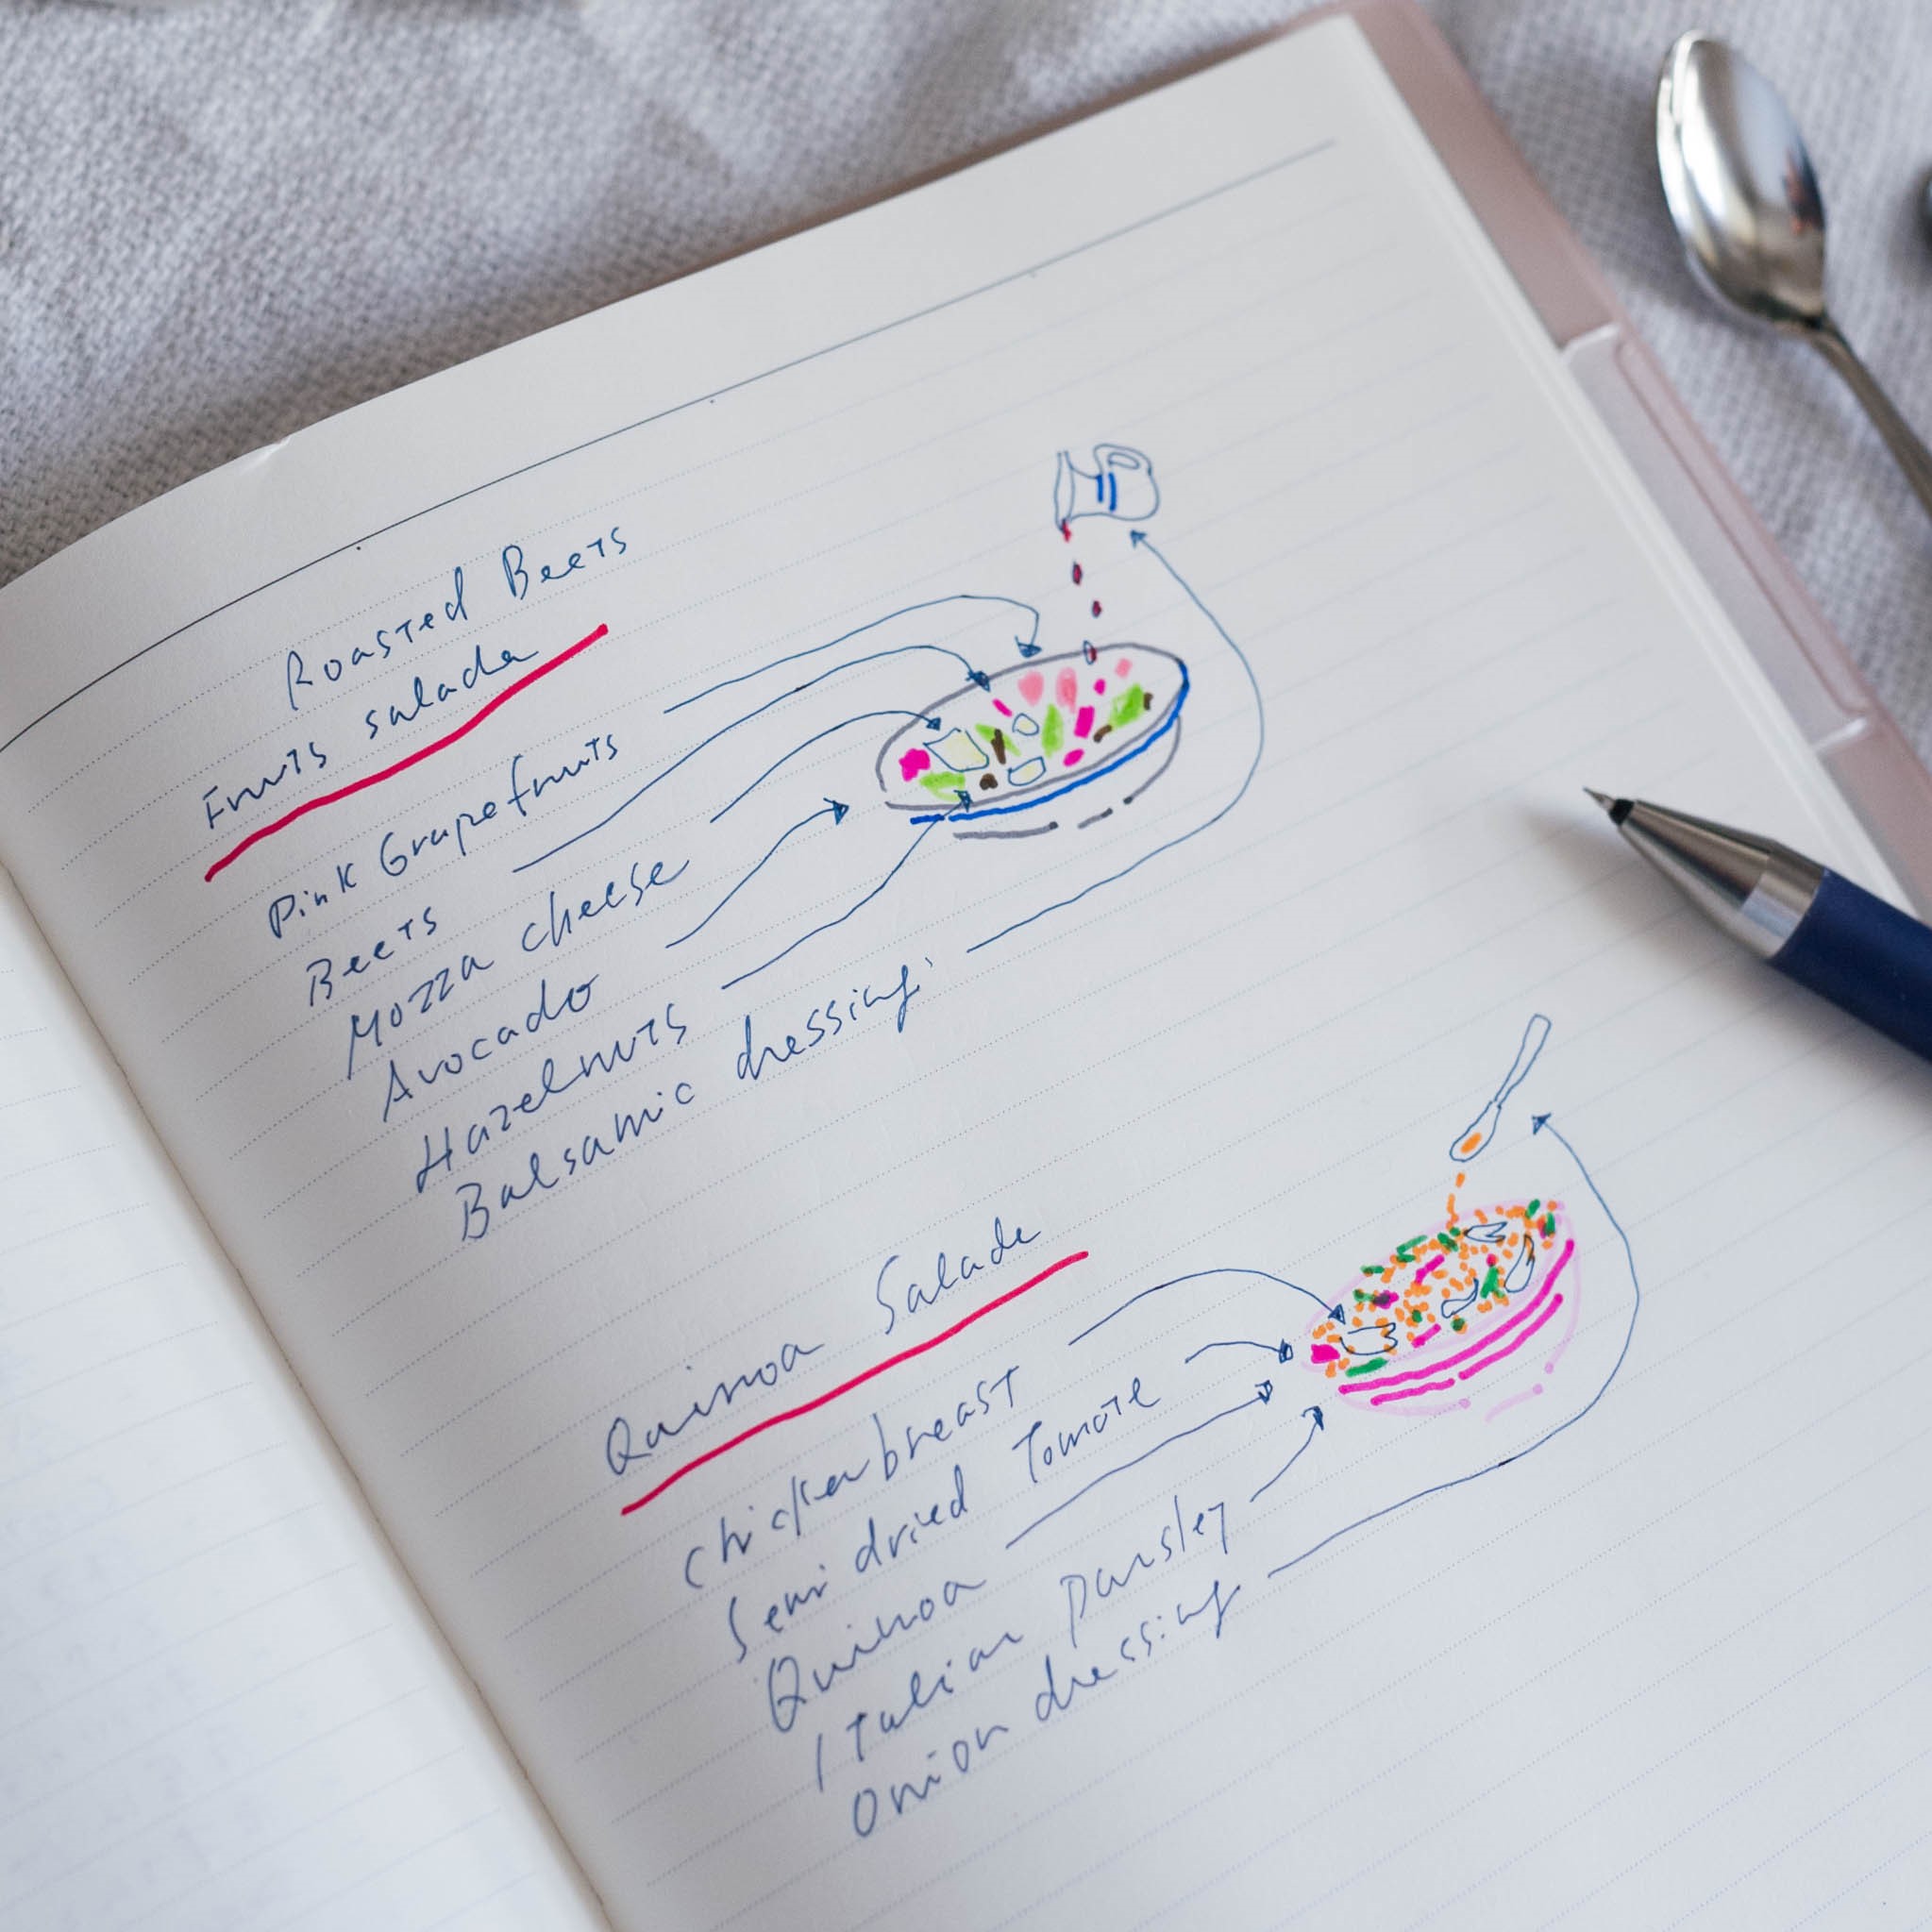 Roasted Beets
Fruits salade
Pink Grapefruits
Beets
Mozza cheese
Avocado
Hazelnuts
Balsamic dressing
Quinoa Salade
Chicken breast
Semi dried Tomate
Quinoa
Italian parsley
Onion dressing